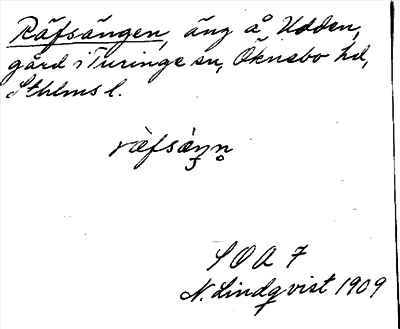 Räfsängen, äng å Udden,
gård i Turinge sn, Öknebo hd,
Sthlms l.
ræ̀fsæ̀ŋn̥
S O A 7
N. Lindqvist 1909